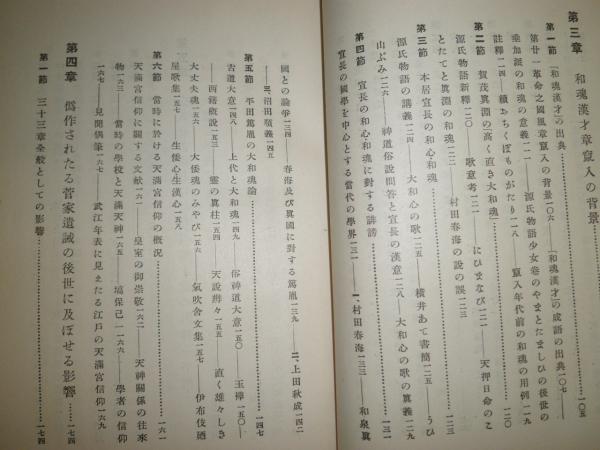 第三章 和魂漢才章竄入の背景……一〇五
第一節 「和魂漢才」の出典……一〇六
「和魂漢才」の成語の出典一〇七――
第廿一革命之國風章竄入の背景
竄入年代前の和魂の用例一〇九
垂加派の和魂の意義一一一――源氏物語少女卷のやまとたましひの後世の
註釋一一四――續おちくぼものがたり一一八
第二節 賀茂眞淵の高く直き大和魂……一二〇
源氏物語新釋一二〇――歌意考一二一――にひまなび一二一――天押日命のこ
とたてと眞淵の和魂一二二――村田春海の説の誤一二三
第三節 本居宣長の和心和魂……一二三
源氏物語の講義一二四――大和心の歌一二五――横井あて書簡一二五――うひ
山ぶみ一二六――神道俗説問答と宣長の漢意一二八――大和心の歌の眞義一二九
第四節 宣長の和心和魂に對する誹謗……一三一
宣長の國學を中心とする當代の學界一三一――一、村田春海一三三――和泉眞
國との論爭一三四――春海及び眞國に對する篤胤一三九――二、上田秋成一四二
――三、沼田順義一四五
第五節 平田篤胤の大和魂論……一四七
古道大意一四八――上代と大和魂一四九――俗神道大意一五〇――玉襷一五〇――
――西籍概説一五三――靈の眞柱一五四――天説辨々一五五――直く雄々しき
大丈夫魂一五六――大倭魂のみやび一五六――氣吹舍文集一五七――伊布伎廼
屋歌集一五七――生倭心生漢心一五八
第六節 當時に於ける天滿宮信仰の概況……一六一
天滿宮信仰に關する文獻一六一――皇室の御崇敬一六二――天神關係の往來
物一六三――當時の學校と天滿天神一六五――塙保己一一六六――學者の信仰
一六七――見聞偶筆一六七――武江年表に見えたる江戸の天滿宮信仰一六九
第四章 僞作されたる菅家遺誡の後世に及ぼせる影響……一七四
第一節 三十三章全般としての影響……一七四